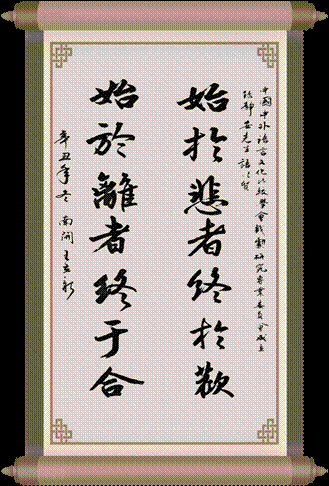 中國中外語言文化比較學會戲劇研究專業委員會成立
靜安先生語以賀
始於悲者終於歡
始於離者終于合
辛丑年冬 南開 王立新